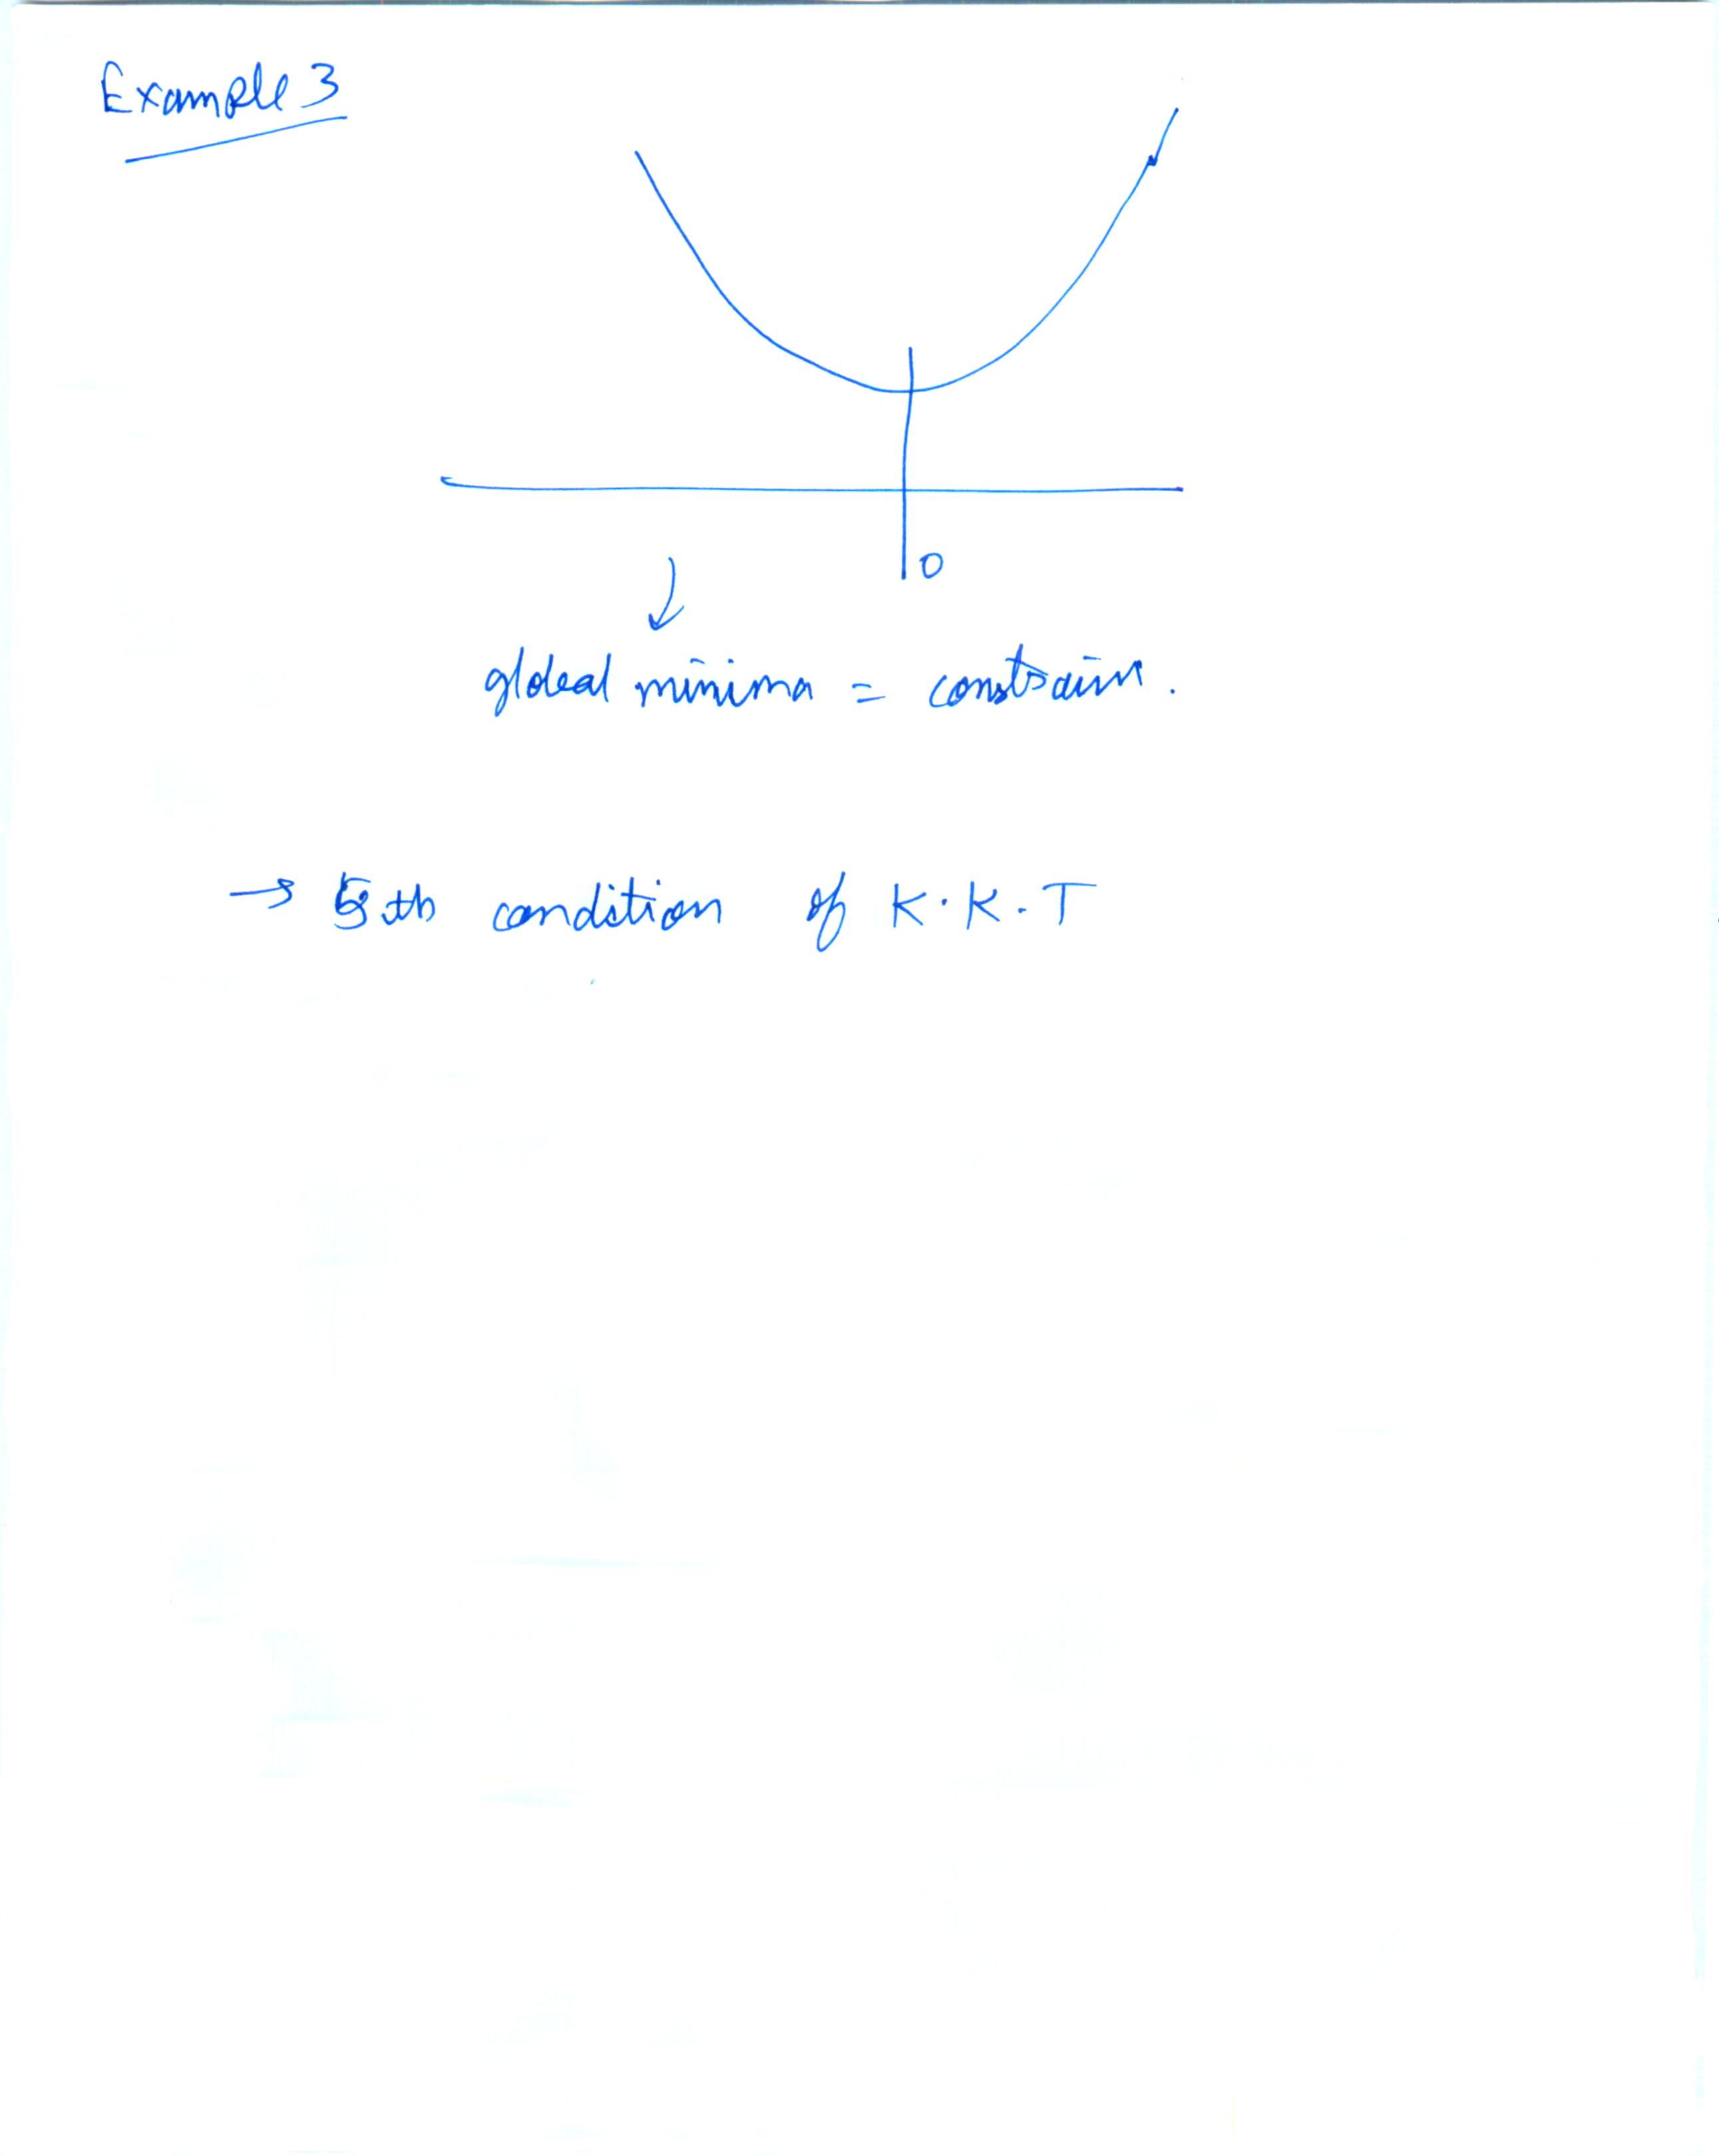 Example 3
0
global minima = constrain.
→ 5th condition of K.K.T